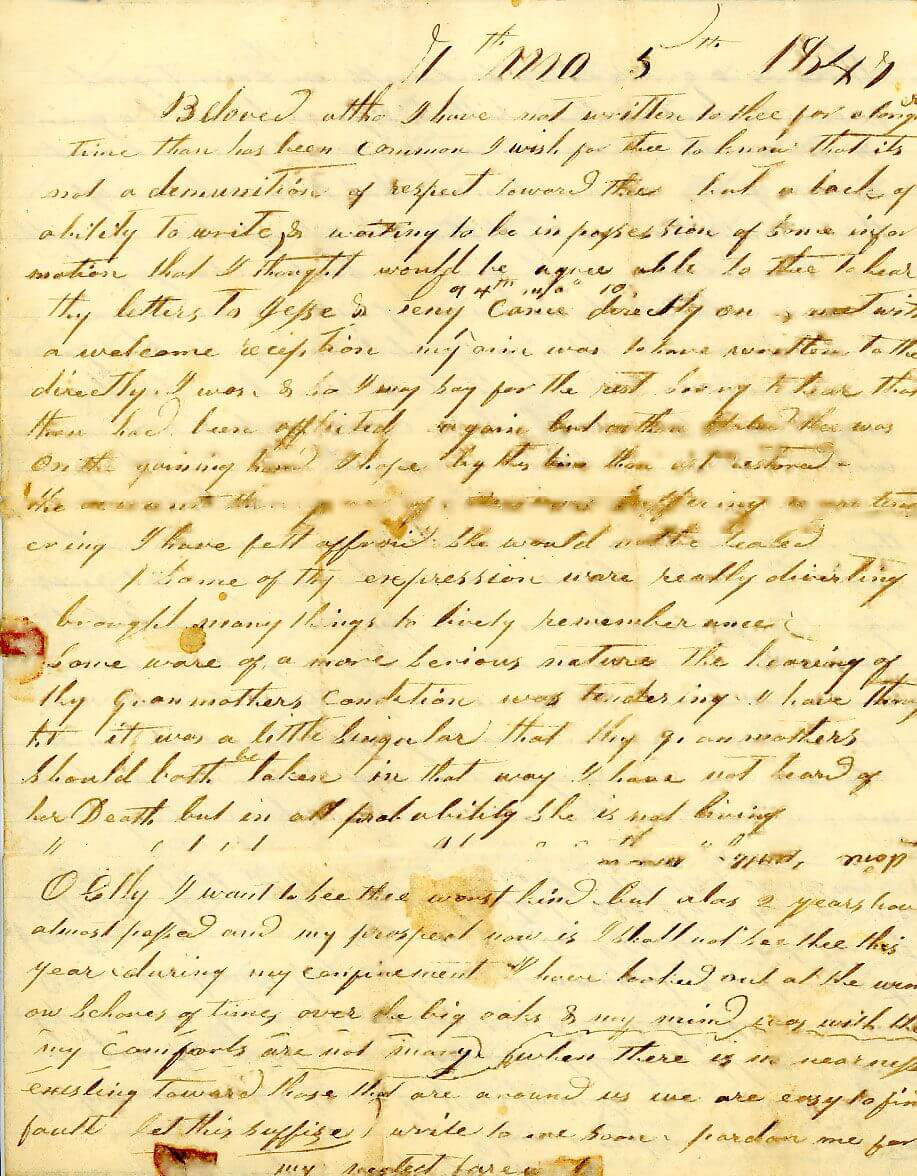 7th mo 5th 184
Beloved altho I have not written to thee for a longer
time than has been common I wish for thee to know that its
not a demunition of respect toward thee but a lack of
ability to write, & waiting to be in possession of some infor
mation that I thought would be agree able to thee to hear
of 4th mo 10
thy letters to Jesse & Seny came directly on & met with
a welcome reception my aim was to have written to thee
directly. I was & so I may say for the rest sorry to hear that
thou had been afflicted again but as thou stated thee was
on the gaining hand I hope by this time thou art restored
the suffering
ering I have felt affraid she would not be healed
Some of thy expression ware really diverting
brought many things to lively rememberance
Some ware of a more serious nature the hearing of
thy granmothers condition was tendering I have thoug
ht it was a little singular that thy granmothers
should both be taken in that way I have not heard of
her Death but in all probability she is not living
O Elly I want to see thee worst kind but alas 2 years have
almost passed and my prospect now is I shall not see thee this
year during my confinement I have looked out at the win
ow Scores of times over the big oaks & my mind was with thee
my comforts are not many when there is no nearness
existing toward those that are around us we are easy to fin
fault let this suffise write to me soon pardon me for
my neglect farewell